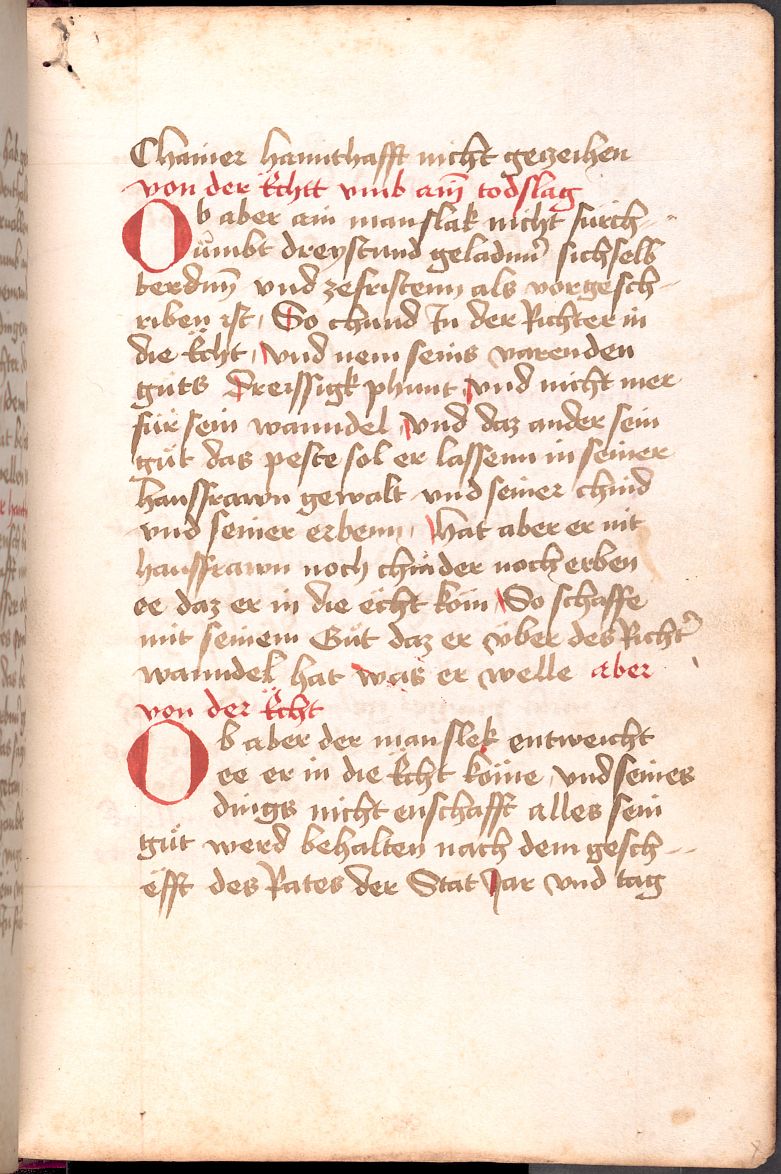 Chainer hannthafft nicht gezeihen
von der Echtt vmb ain todslag
Ob aber ain manslak nicht fürch-
kumbt dreystund geladner sich selb
berdinn vnd zefristenn als vorgesch-
riben ist, So chund In der Richter in
die Echt, vnd nem seins varenden
guts Dreissigk phunt, vnd nicht mer
für sein wanndel, vnd daz ander sein
gůt das peste sol er lassenn in seiner
haussfrawn gewalt vnd seiner chind
vnd seiner erbenn, Hat aber er nit
haussfrawn noch chinder noch erben
ee daz er in die ëcht köm So schaffe
mit seinem Gůt daz er über des Richter
wanndel hat was er welle aber
von der Echt
Ob aber der manslek entweicht
ee er in die Echt köme, vnd seines
dings nicht enschafft alles sein
gůt werd behalten nach dem gesch-
efft des Rates der Stat Jar vnd tag